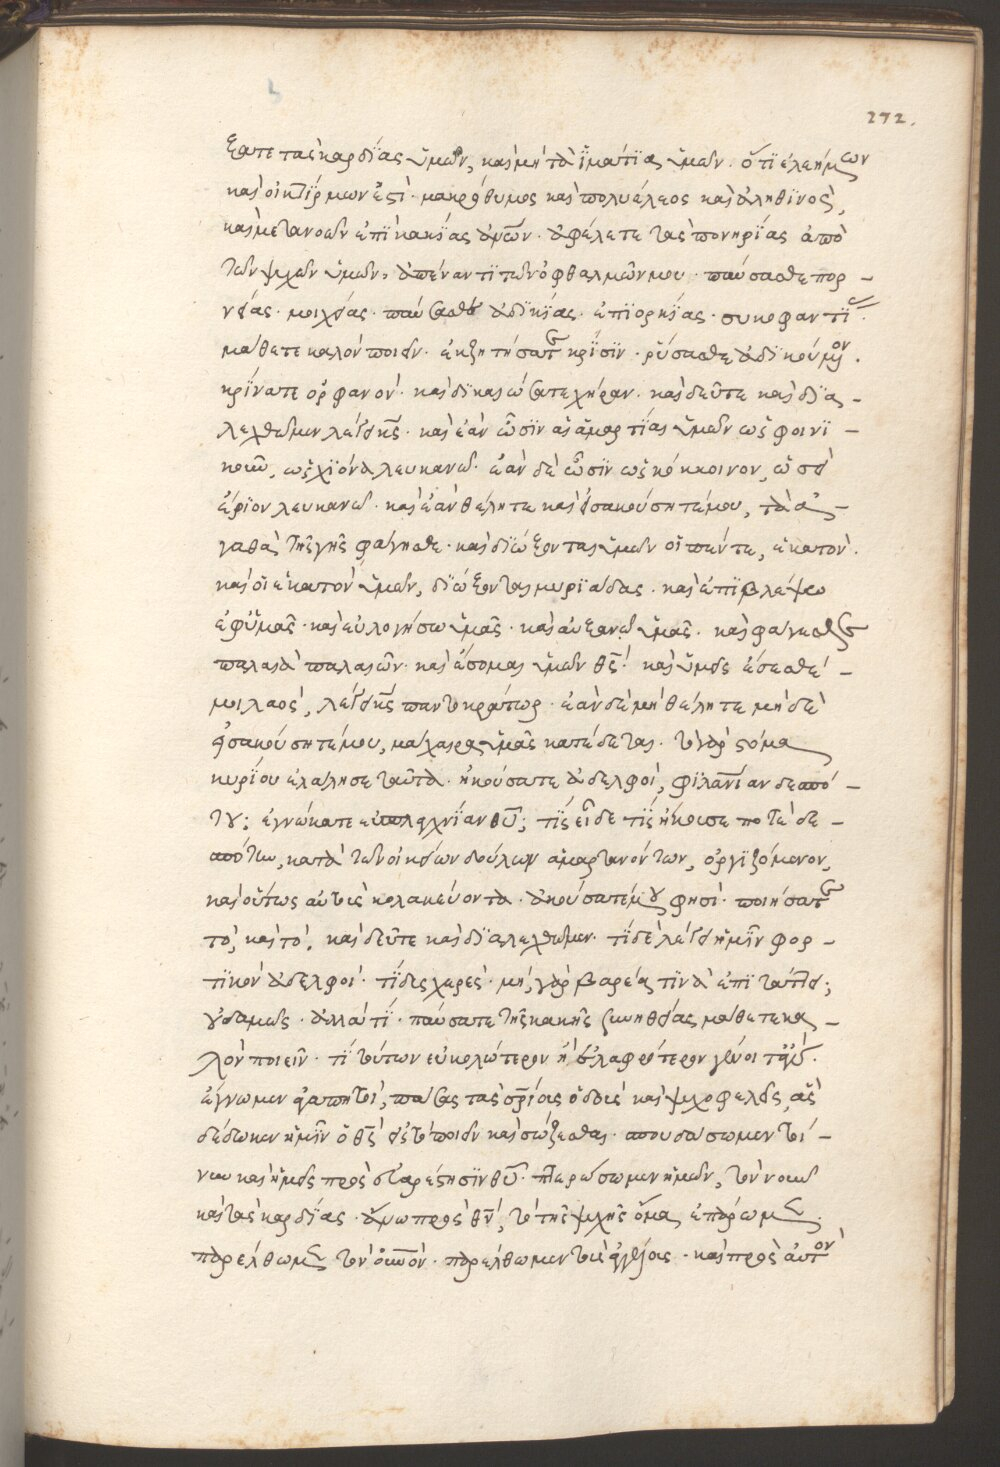 272.
ξατε τὰς καρδΐας ὑμῶν, καὶ μὴ τὰ ἱμάτϊα ὑμῶν. ὅτϊ ἐλεήμων
καὶ οἰκτΐρμων ἐστὶ· μακρόθυμος καὶ πολυέλεος καὶ ἀληθϊνὸς,
καὶ μετανοῶν ἐπῒ κακΐας ἀν̅ω̅ν̅· ἀφέλετε τὰς πονηρΐας ἀπὸ
τῶν ψυχῶν ὑμῶν, ἀπέναντϊ τῶν ὀφθαλμῶν μου· παύσασθε πορ-
νείας· μοιχείας· παύσασθε ἀδϊκΐας· ἐπϊορκΐας· συκοφαντΐας·
μάθετε καλὸν ποιεῖν· ἐκζητήσατε κρΐσϊν· ῥύσασθε ἀδϊκούμενον.
κρΐνατε ὀρφανὸν· καὶ δϊκαιώσατε χήραν· καὶ δεῦτε καὶ δϊα-
λεχθῶμεν λέγει κ̅ς̅· καὶ ἐὰν ὦσϊν αἱ ἁμαρτΐαι ὑμῶν ὡς φοινϊ-
κοῦν, ὡς χϊόνα λευκανῶ· ἐὰν δὲ ὦσϊν ὡς κόκκινον, ὡσεὶ
ἔρϊον λευκανῶ· καὶ ἐὰν θέλητε καὶ εἰσακούσητέ μου, τὰ ἀ-
γαθὰ τῆς γῆς φάγησθε· καὶ δϊώξονται ὑμῶν οἱ πέντε, ἑκατὸν·
καὶ οἱ ἑκατὸν ὑμῶν, δϊώξονται μυρϊάδας· καὶ ἐπϊβλέψω
ἐφ ὑμᾶς· καὶ εὐλογήσω ὑμᾶς· καὶ αὐξανῶ ὑμᾶς· καὶ φάγεσθε
παλαιὰ παλαιῶν· καὶ ἔσομαι ὑμῶν θ̅ς̅· καὶ ὑμεῖς ἔσεσθέ-
μοι λαὸς, λέγει κ̅ς̅ παντοκράτωρ· ἐὰν δὲ μὴ θέλητε μὴ δὲ
εἰσακούσητέ μου, μάχαιρα ὑμᾶς κατέδεται· τὸ γὰρ στόμα
κυρΐου ἐλάλησε ταῦτα· ἠκούσατε ἀδελφοὶ, φϊλανΐαν δεσπό-
του; ἐγνώκατε εὐσπλαχνΐαν θ̅υ̅; τΐς εἶδε τϊς ἤκουσε ποτὲ δε-
σπότην, κατὰ τῶν οἰκείων δούλων ἁμαρτανόντων, ὀργϊζόμενον,
καὶ οὕτως αὐτοὺς κολακεύοντα· ἀκούσατέ μου φησὶ· ποιήσατε
τὸ, καὶ τὸ, καὶ δεῦτε καὶ δϊαλεχθῶμεν· τΐ δὲ λέγει ἡμῖν φορ-
τϊκὸν ἀδελφοὶ· τΐ δυσχερὲς· μὴ γὰρ βαρέα τϊνὰ ἐπϊτάττει;
οὐδαμῶς· ἀλλὰ τΐ· παύσατε τῆς κακῆς συνηθείας μάθετε κα-
λὸν ποιεῖν· τΐ τούτων εὐκολώτερον ἢ ἐλαφρότερον γένοιτ ἄν·
ἔγνωμεν ἀγαπητοὶ, πάσας τὰς σωτηρΐας ὁδοὺς καὶ ψυχοφελεῖς, ἃς
δέδωκεν ἡμῖν ὁ θ̅ς̅ εἰς τὸ ποιεῖν καὶ σώζεσθαι· σπουδάσωμεν τοί-
νυν καὶ ἡμεῖς πρὸς εὐαρέστησϊν θ̅υ̅· πτερώσωμεν ἡμῶν, τὸν νοῦν
καὶ τὰς καρδΐας· ἄνω πρὸς θ̅ν̅, τὸ τῆς ψυχῆς ὄμμα ἐπάρωμεν·
παρέλθωμεν τὸν οὐ̅νο̅ν· παρέλθωμεν τοὺς ἀγγέλους· καὶ πρὸς αὐτὸν